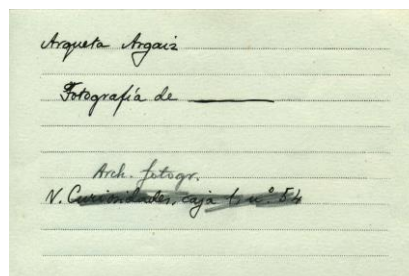 Arqueta Argaiz
Fotografía de ———
Arch. fotogr.
V. Curiosidades, caja 1, nº 54